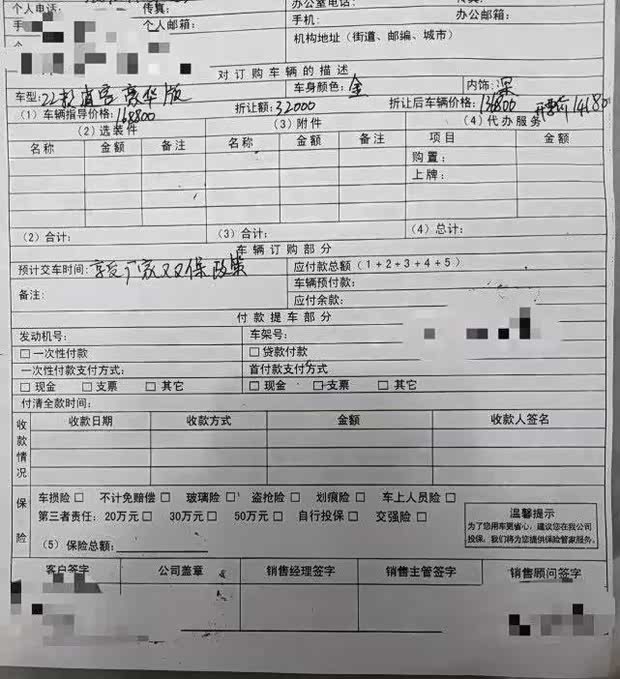 个人电话: 传真: 办公室电话: 传真:
手 个人邮箱: 手机: 办公邮箱:
机构地址（街道、邮编、城市）
对订购车辆的描述
车型: 22款 豪华版 车身颜色: 金 内饰: 深
(1) 车辆指导价格: 168800 折让额: 32000 折让后车辆价格: 136800
(2) 选装件 (3) 附件 (4) 代办服务
名称 金额 备注 名称 金额 备注 项目 金额
购置:
上牌:
(2) 合计: (3) 合计: (4) 总计:
车辆订购部分
预计交车时间: 享受厂家双保政策 应付款总额 (1+2+3+4+5)
车辆预付款:
备注: 应付余款:
付款提车部分
发动机号: 车架号:
□一次性付款 □贷款付款
一次性付款支付方式: 首付款支付方式
□现金 □支票 □其它 □现金 □支票 □其它
付清全款时间:
收款情况 收款日期 收款方式 金额 收款人签名
保险 车损险□ 不计免赔偿□ 玻璃险□ 盗抢险□ 划痕险□ 车上人员险□
第三者责任: 20万元□ 30万元□ 50万元□ 自行投保□ 交强险□
温馨提示
为了您用车更省心，建议您在我公司
投保，我们将为您提供保险管家服务。
(5) 保险总额:
客户签字 公司盖章 销售经理签字 销售主管签字 销售顾问签字